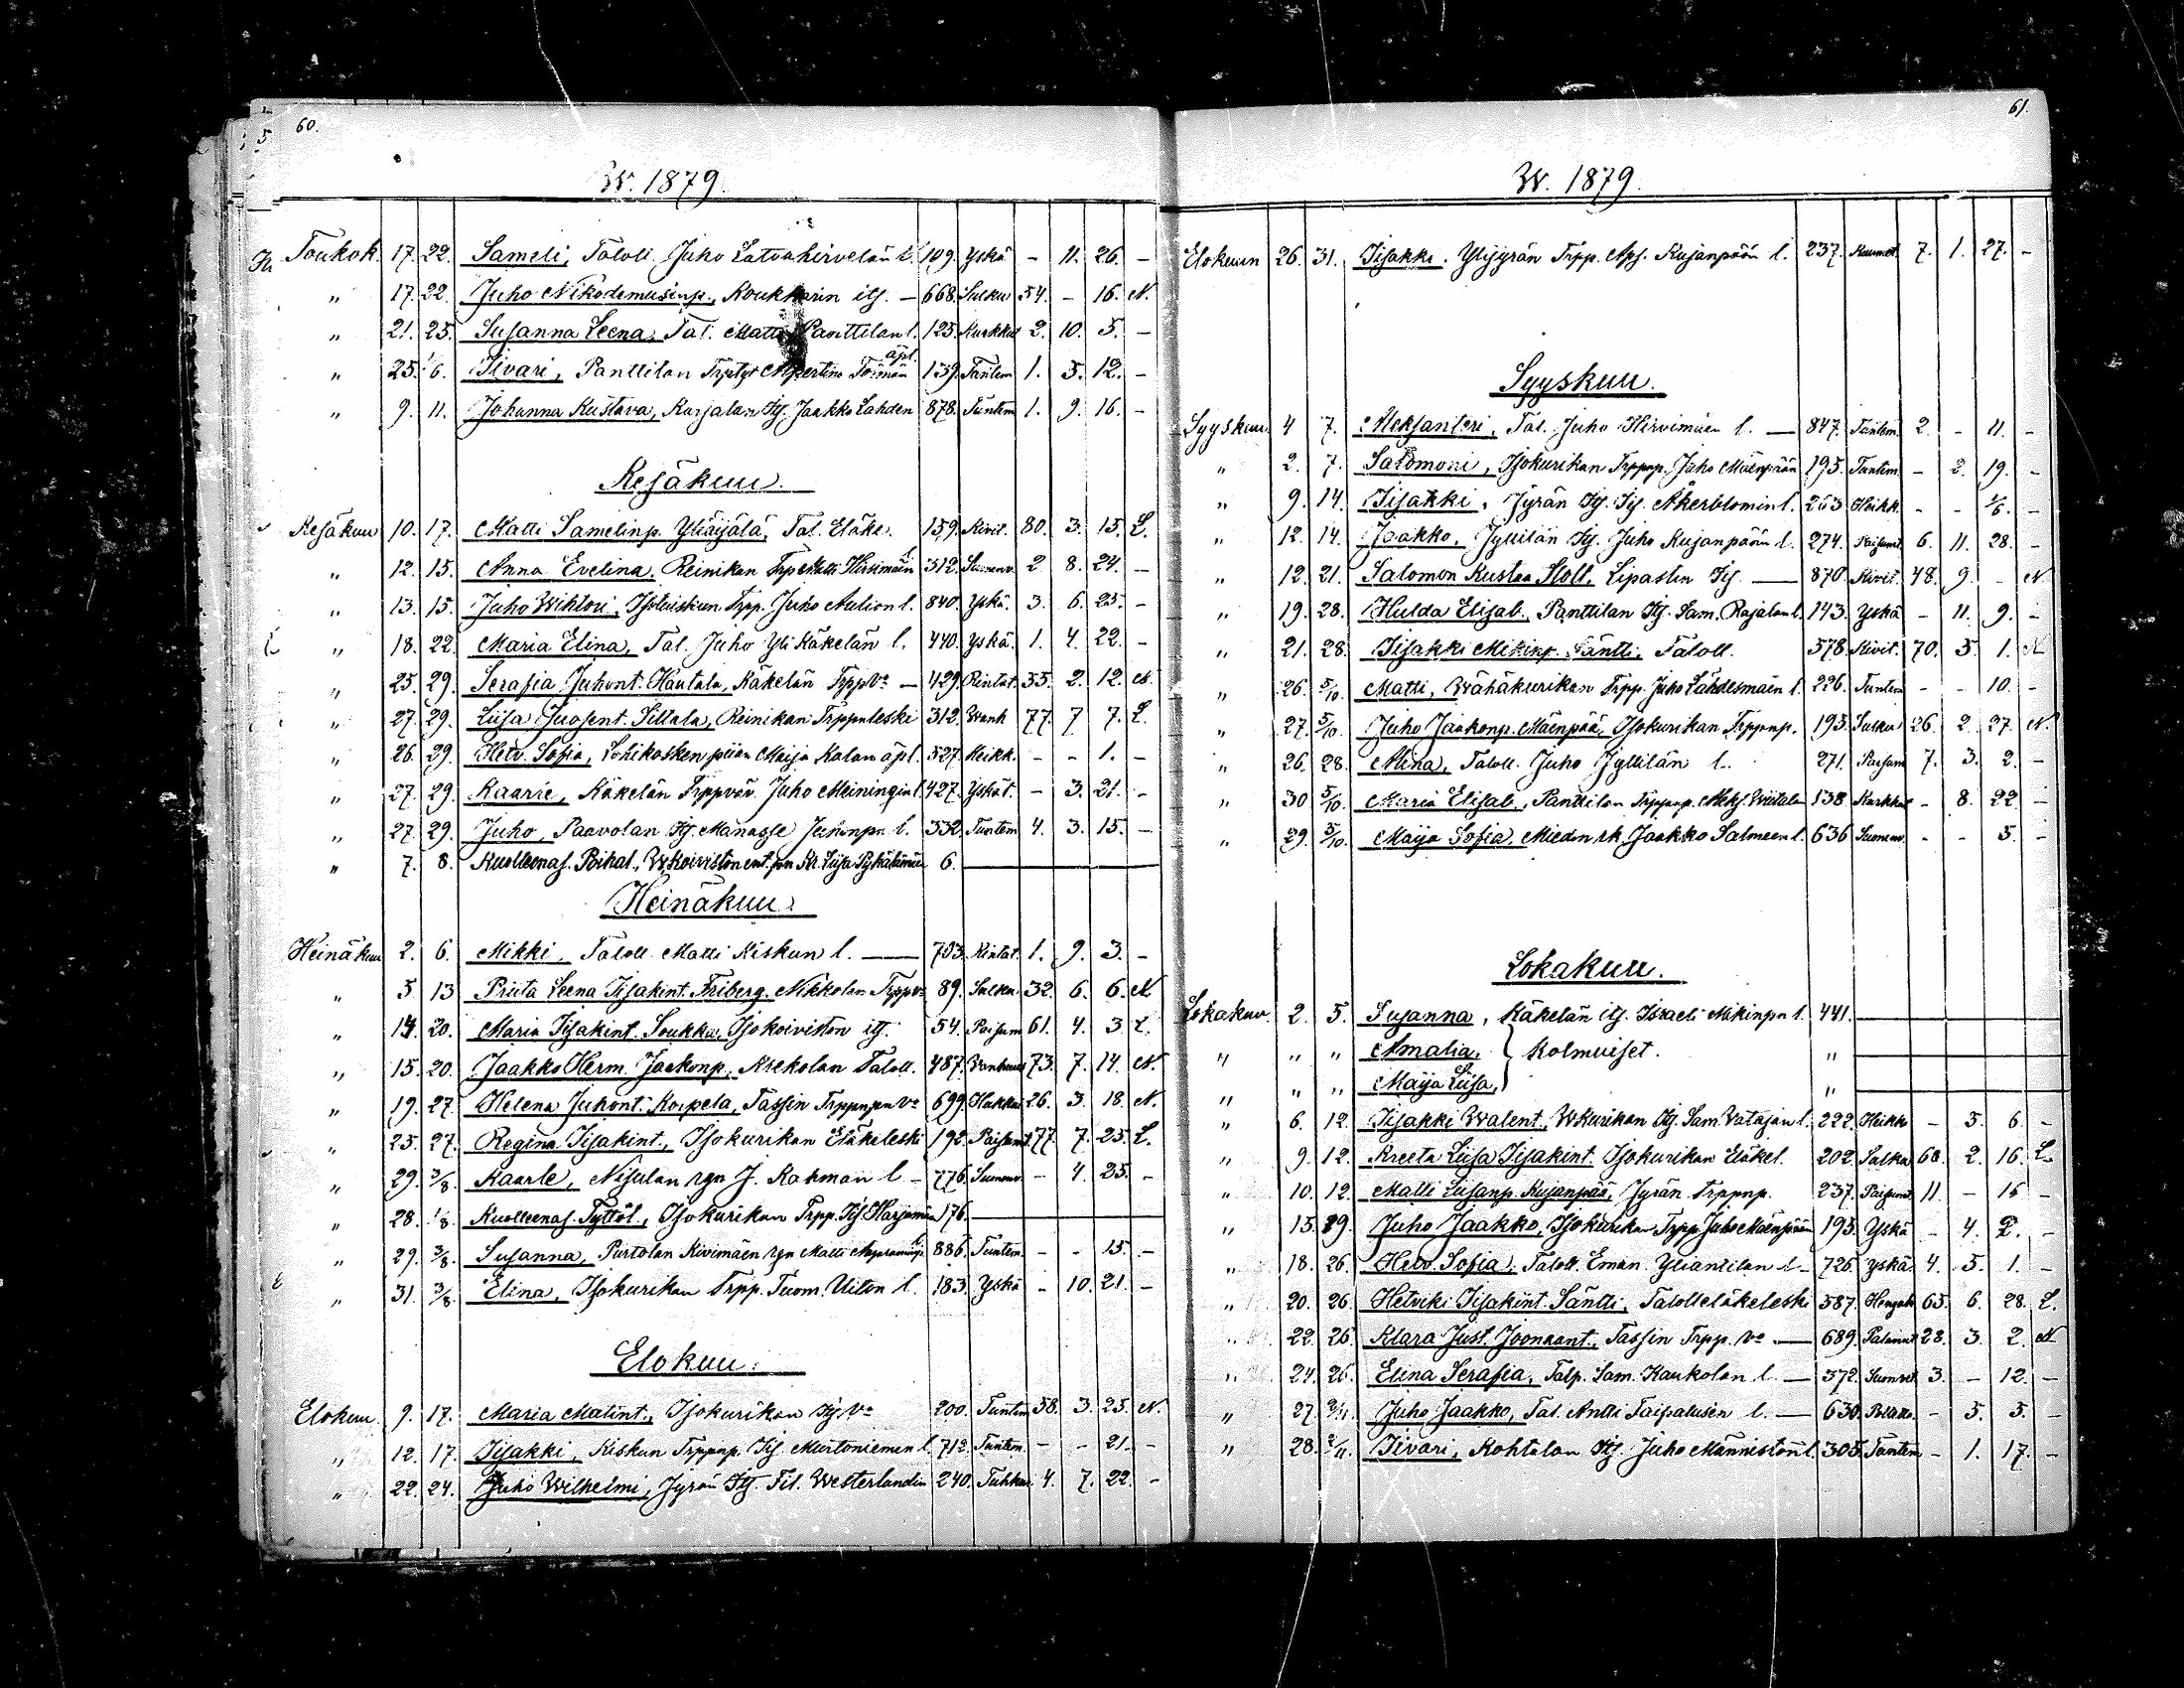 60.
W. 1879.
Toukok. 17. 22. Sameli, Taloll. Juho Latvahirvelän l. 109. Yskä - 11. 26. -
" 17. 22. Juho Nikodemusinp., Koukkarin itj. — 668. Sulku 54. - 16. N.
" 21. 25. Susanna Leena, Tal. Matti Panttilan l. 125. Kurkku 2. 10. 5. -
" 25. 1/6. Iivari, Panttilan äpl. 139. Tuntem 1. 5. 12. -
" 9. 11. Johanna Kustava, Karjalan Itj. Jaakko Lahden 878. Tuntem 1. 9. 16. -
Kesäkuu.
Kesäkuu 10. 17. Matti Samelinp. Yliäijälä, Tal. Eläke. 159. Kivit. 80. 3. 15. L.
" 12. 15. Anna Evelina, Reinikan Trp Matti Hirsimäen l. 312. 2 8. 24. -
" 13. 15. Juho Wihtori, Trpp. Juho Aution l. 840. Yskä. 3. 6. 25. -
" 18. 22. Maria Elina, Tal. Juho Yli Käkelän l. 440. Yskä. 1. 4. 22. -
" 25. 29. Serafia Juhont. Hautala, Käkelän Trppvo — 429. Rintat. 35. 2. 12. N.
" 27. 29. Liisa Juosent. Sillala, Reinikan Trppnleski 312. Wanh 77. 7 7. L.
" 26. 29. Hetv. Sofia, Lohikosken piian Maija Kalan äpl. 527. Heikk. - - 1. -
" 27. 29. Kaarle, Käkelän Trppväv. Juho Meiningin l. 427. Yskät. - 3. 21. -
" 27. 29. Juho, Paavolan Itj. Manasse Juhonpn l. 332. Tuntem 4. 3. 15. -
" 7. 8. Kuolleenas. Poikal., W.Koiviston ent. pn Kr. Liisa 6.
Heinäkuu.
Heinäkuu 2. 6. Mikki, Taloll. Matti Kiskun l. — 703. Rintat. 1. 9. 3. -
" 5 13 Priita Leena Iisakint. Friberg, Nikkolan Trppvo 89. Sulku. 32. 6. 6. N
" 14. 20. Maria Iisakint. Soukka, Isokoiviston itj. 54. Paisum 61. 4. 3. L.
" 15. 20. Jaakko Herm. Jaakonp., Krekolan Taloll. 487. Wanhuus 73. 7. 14. N.
" 19. 27. Helena Juhont. Korpela, Tassin Trppnpn vo 699. Hukku 26. 3. 18. N.
" 25. 27. Regina Iisakint., Isokurikan Eläkeleski 192. Paisumt 77. 7. 25. L.
" 29. 3/8. Kaarle, Nisulan rgn J. Rahman l - 776. Suonenv. - 4. 25. -
" 28. 1/8. Kuolleenas. Tyttöl., Isokurikan Trpp. Iis. Harjunpää 176.
" 29. 3/8. Susanna, Purtolan Kivimäen rgn Matti l. 886. Tuntem. - - 15. -
" 31. 3/8. Elina, Isokurikan Trpp. Tuom. Uiton l. 183. Yskä - 10. 21. -
Elokuu.
Elokuu. 9. 17. Maria Matint., Isokurikan Itj. vo 200. Tuntem 58. 3. 25. N.
" 12. 17. Iisakki, Kiskun Trppnp. Iis. Murtoniemen l. 712. Tuntem. - - 21. -
" 22. 24. Juho Wilhelmi, Jyrän Itj. Fil. Westerlundin 240. Tuhkur. 4. 7. 22. -
61.
W. 1879.
Elokuun 26. 31. Iisakki. Ylijyrän Trpp. Aps. Kujanpään l. 237. Kuumet. 7. 1. 27. -
Syyskuu.
Syyskuu 4 7. Aleksanteri, Tal. Juho Hirvimäen l. — 847. Tuntem. 2. - 11. -
" 2. 7. Salomoni, Isokurikan Trppnp. Juho Mäenpään 195. Tuntem. - 2. 19. -
" 9. 14. Iisakki, Jyrän Itj. Iis. Åkerblomin l. 263 Heikk. - - 1/6. -
" 12. 14. Jaakko, Jyllilän Itj. Juho Kujanpään l. 274. Paisumt. 6. 11. 28. -
" 12. 21. Salomon Kustaa Stoll, Lipastin Itj. — 870. Kivit. 48. 9. - N
" 19. 28. Hulda Elisab., Panttilan Itj. Sam. Rajalan l. 143. Yskä - 11. 9. -
" 21. 28. Iisakki Mikinp. Säntti, Taloll. 578. Kivit. 70. 5. 1. N
" 26. 5/10. Matti, Wähäkurikan Trpp. Juho Lähdesmäen l. 226. Tuntem - - 10. -
" 27. 5/10. Juho Jaakonp. Mäenpää, Isokurikan Trppnp. 195. Sulku 26. 2. 27. N.
" 26. 28. Alina, Taloll. Juho Jyllilän l. 271. Paisum 7. 3. 2. -
" 30 5/10. Maria Elisab., Panttilan Trppnp. Aleks. Wiitala 138 Kurkkut - 8. 22 -
" 29. 5/10. Maija Sofia, Miedon rk. Jaakko Salmeen l. 636 Suonenv. - - 5. -
Lokakuu.
Lokakuu. 2. 5. Susanna, Käkelän itj. Israeli Mikinpn l. 441.
" " " Amalia, } Kolmuiset. "
" " " Maija Liisa, "
" 6. 12. Iisakki Walent., W.Kurikan Itj. Sam. Watajan l. 222. Heikk - 5. 6. -
" 9. 12. Kreeta Liisa Iisakint. Isokurikan Eläkel. 202. Sulku 68. 2. 16. L.
" 10. 12. Matti Liisanp. Kujanpää, Jyrän Trppnp. 237. Paisumt. 11. - 15 -
" 15. 19. Juho Jaakko, Isokurikan Trpp. Juho Mäenpään 195. Yskä - 4. 2. -
" 18. 26. Hetv. Sofia, Taloll. Eman. Yliantilan l - 726. Yskä 4. 5. 1. -
" 20. 26. Hetviki Iisakint. Säntti, Talolleläkeleski 587. Hengah 65. 6. 28. L.
" 22. 26. Klara Just. Joonaant., Tassin Trpp. vo — 689. Palanut 28. 3. 2. N
" 24. 26. Elina Serafia, Talp. Sam. Kaukolan l. — 572. 3. - 12. -
" 27. 2/11. Juho Jaakko, Tal. Antti Taipalusen l. — 630. - 5. 5. -
" 28. 2/11. Iivari, Kohtalan Itj. Juho Männistön l. 305. Tuntem - 1. 17. -